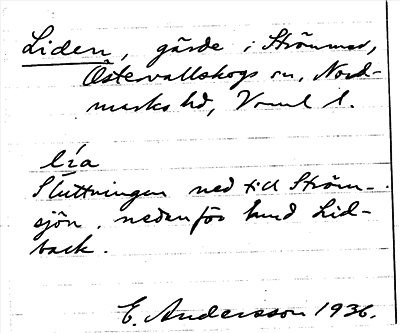 Liden, gärde i Strömmed,
Östervallskogs sn, Nord-
marks hd, Vrml l.
lía
Sluttningen ned till Ström-
sjön, nedanför hmd Lid-
back.
E. Andersson 1936.